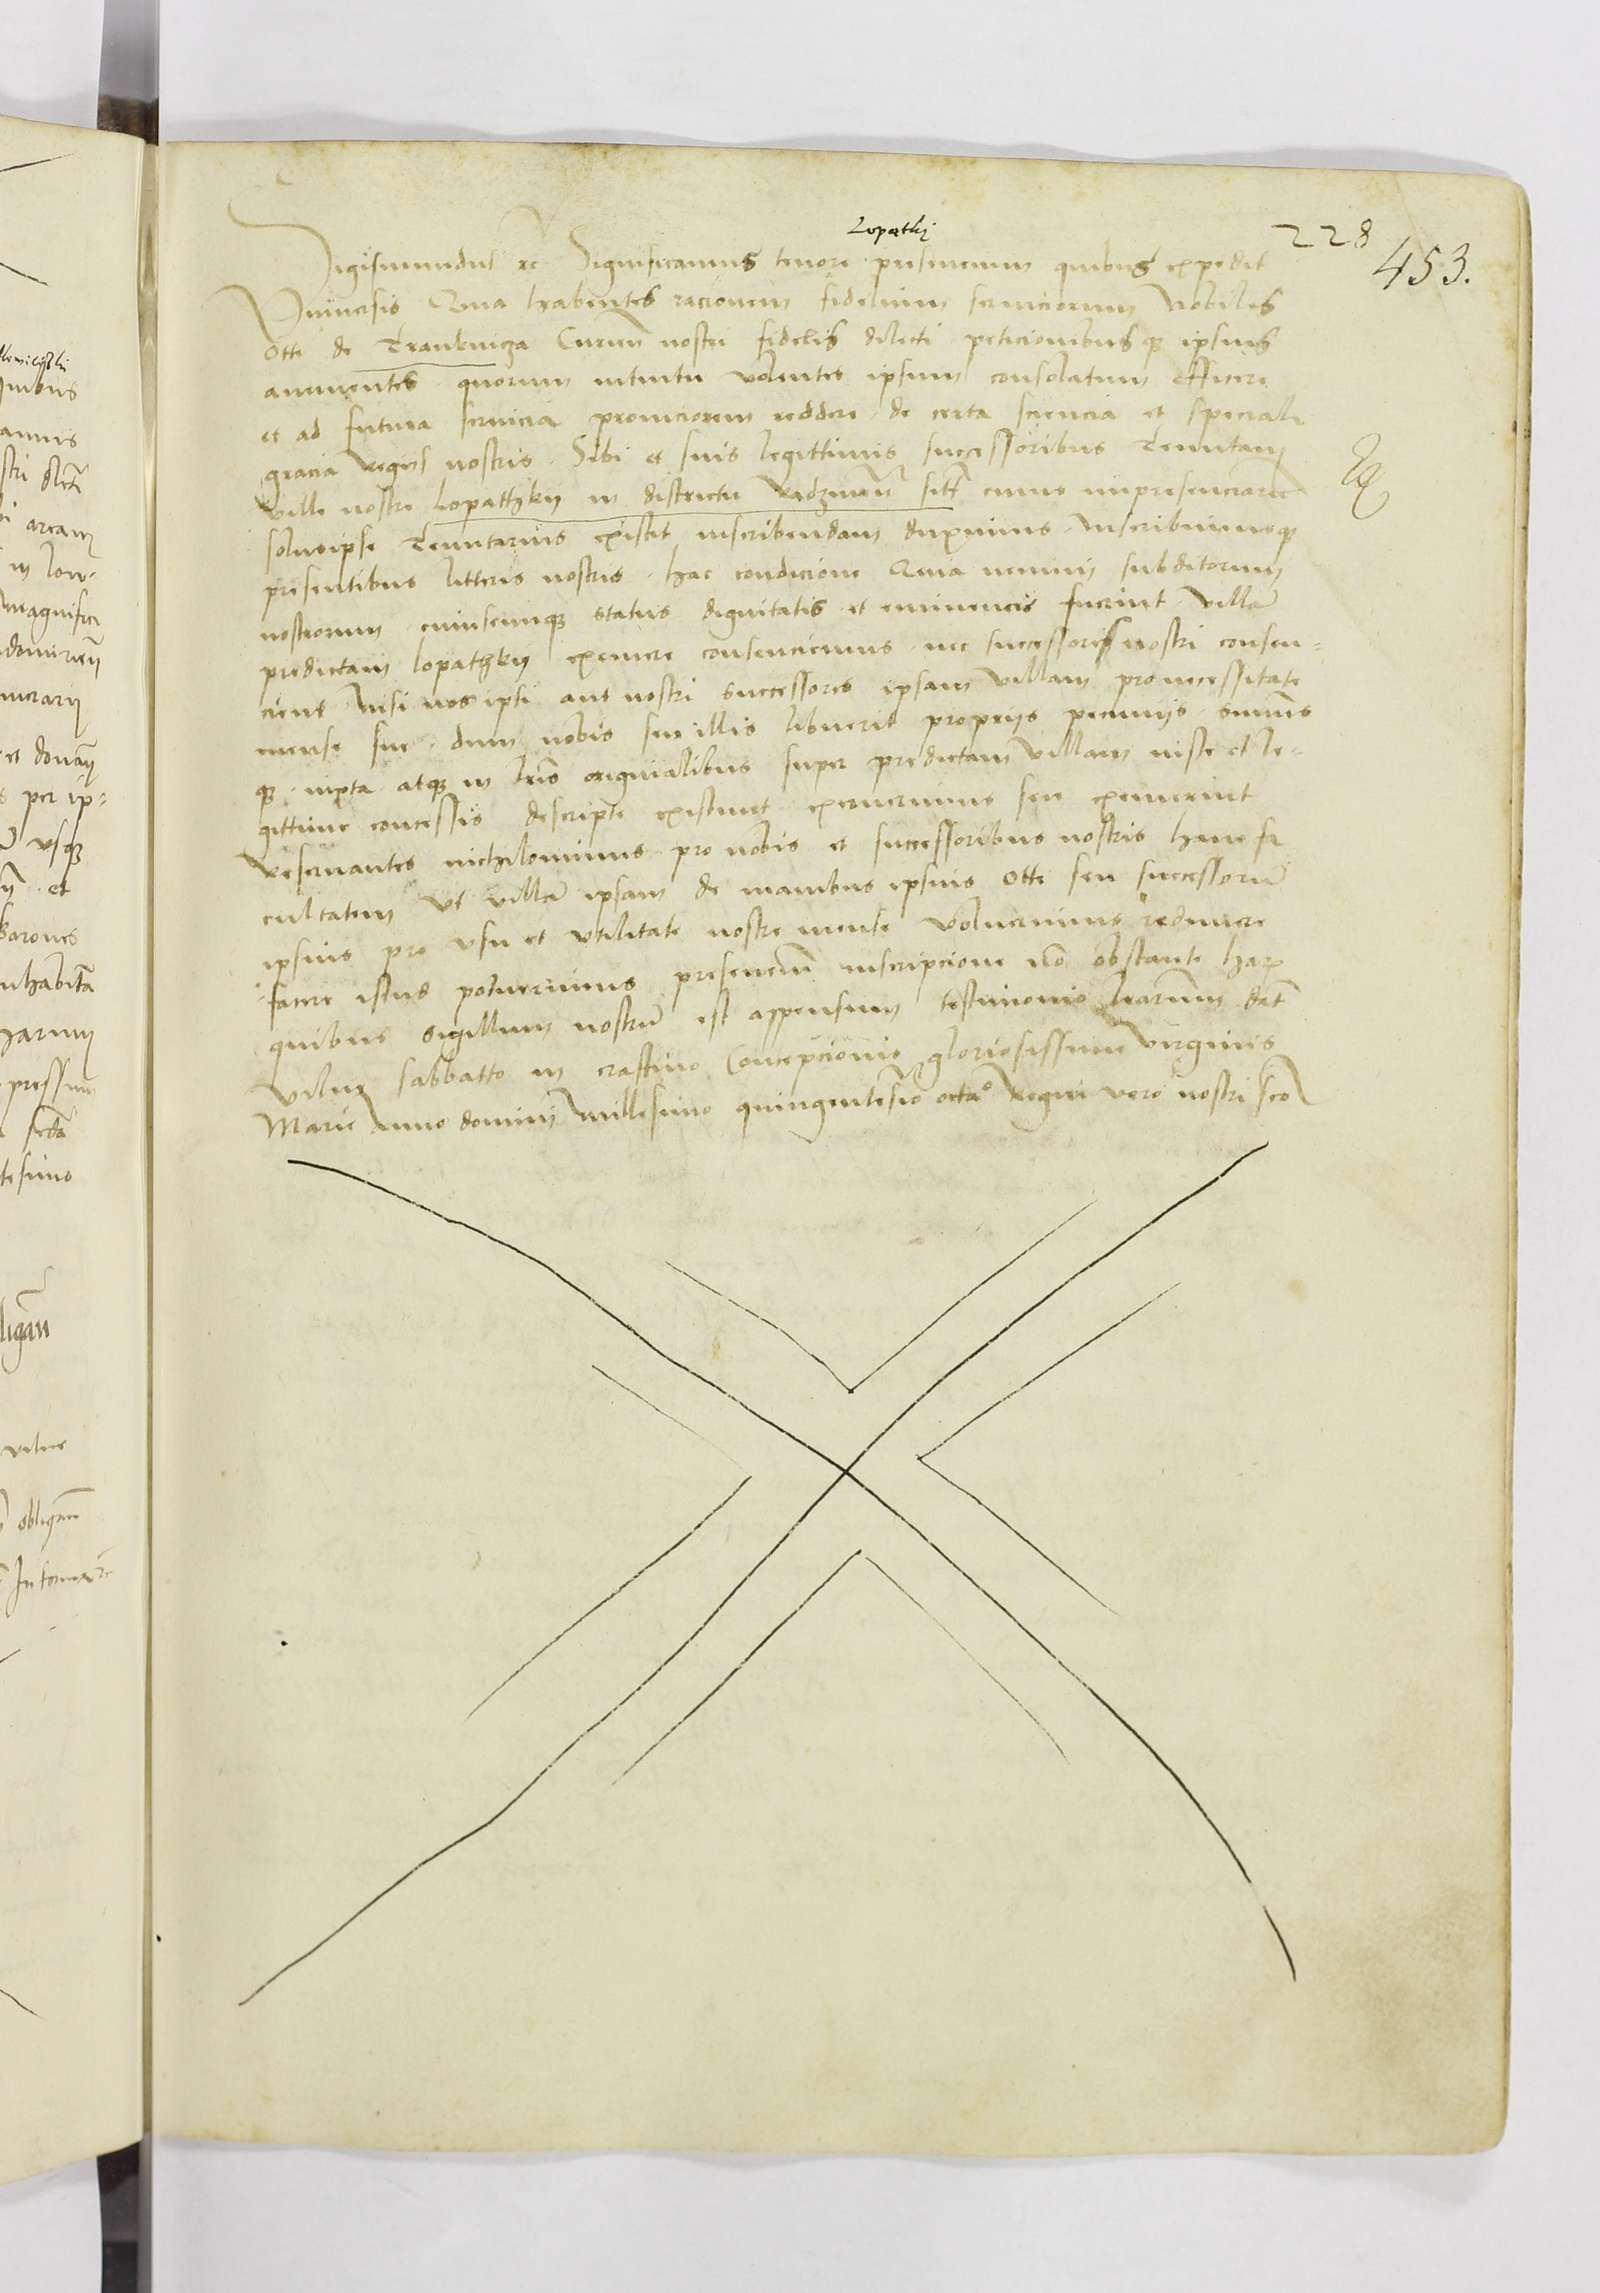 Lopatki
228
453.
Sigismundus etc Significamus tenore presencium quibus expedit
Vniuersis Quia habentes racionem fidelium seruiciorum Nobilis
Otte de Trankwicza Curien nostri fidelis dilecti peticionibusque ipsius
annuentes quorum intuitu volentes ipsum consolatum efficere
et ad futura seruicia promciorem reddere de certa sciencia et speciali
gracia regus nostris Sibi et suis legittimis successoribus Tenutam
ville nostre Lopathky in districtu Radzinen sitt cuius impresenciarum
solusipse Tenutarius existit inscribendam duximus Inscribimusque
presentibus litteris nostris hac condicione Quia nemini subditorum
nostrorum cuiuscumque status dignitatis et eminencie fuerint villam
predictam lopathky eximere consenciemus nec successores nostri consen-
cient Nisi nos ipsi aut nostri successores ipsam villam pronecessitate
mense sue dum nobis seu illis libuerit proprijs pecunijs summis
que iuxta atque in lris originalibus super predictam villam iuste et le-
gittime concessis descripte existunt exemerimus seu exemerint
Reseruantes nichilominus pro nobis et successoribus nostris hanc fa
cultatem Vt villam ipsam de manibus ipsius Otte seu successorum
ipsius pro vsu et vtilitate nostre mense voluerimus redimere
facere istud poterimus presencium inscripcione non obstante harum
quibus sigillum nostrum est appensum testimonio literarum dat
Vilne sabbatto in crastino Concepcionis gloriosissime virginis
Marie Anno domini Millesimo quingentesimo octavo Regni vero nostri scdo